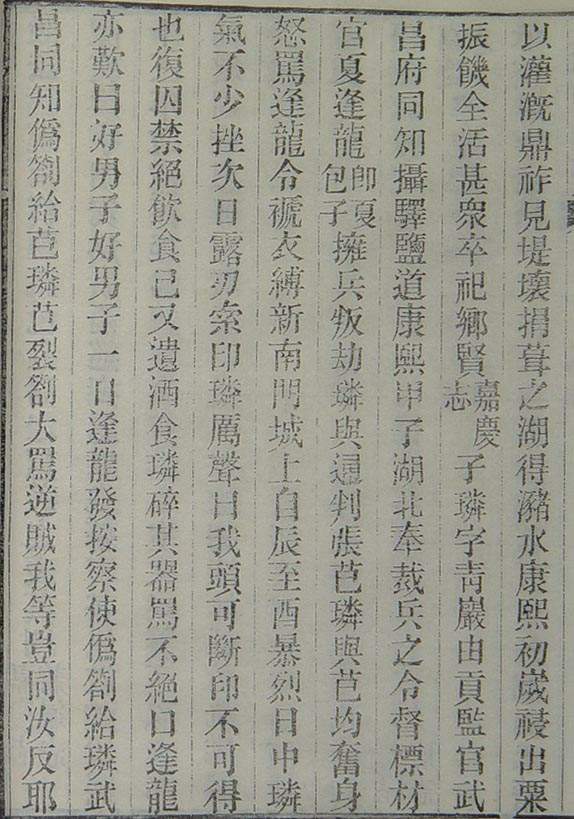 以灌漑鼎祚見堤壞捐葺之湖得瀦水康熙初歲祲出粟
振饑全活甚衆卒祀鄉賢嘉慶志子璘字靑巖由貢監官武
昌府同知攝驛鹽道康熙甲子湖北奉裁兵之令督標材
官夏逢龍卽夏包子擁兵叛劫璘與通判張芑璘與芑均奮身
怒罵逢龍令褫衣縛新南門城上自辰至酉暴烈日中璘
氣不少挫次日露刃索印璘厲聲曰我頭可斷印不可得
也復囚禁絕飮食已又遺酒食璘碎其器罵不絕口逢龍
亦歎曰好男子好男子一日逢龍發按察使僞劄給璘武
昌同知僞劄給芑璘芑裂劄大罵逆賊我等豈同汝反耶